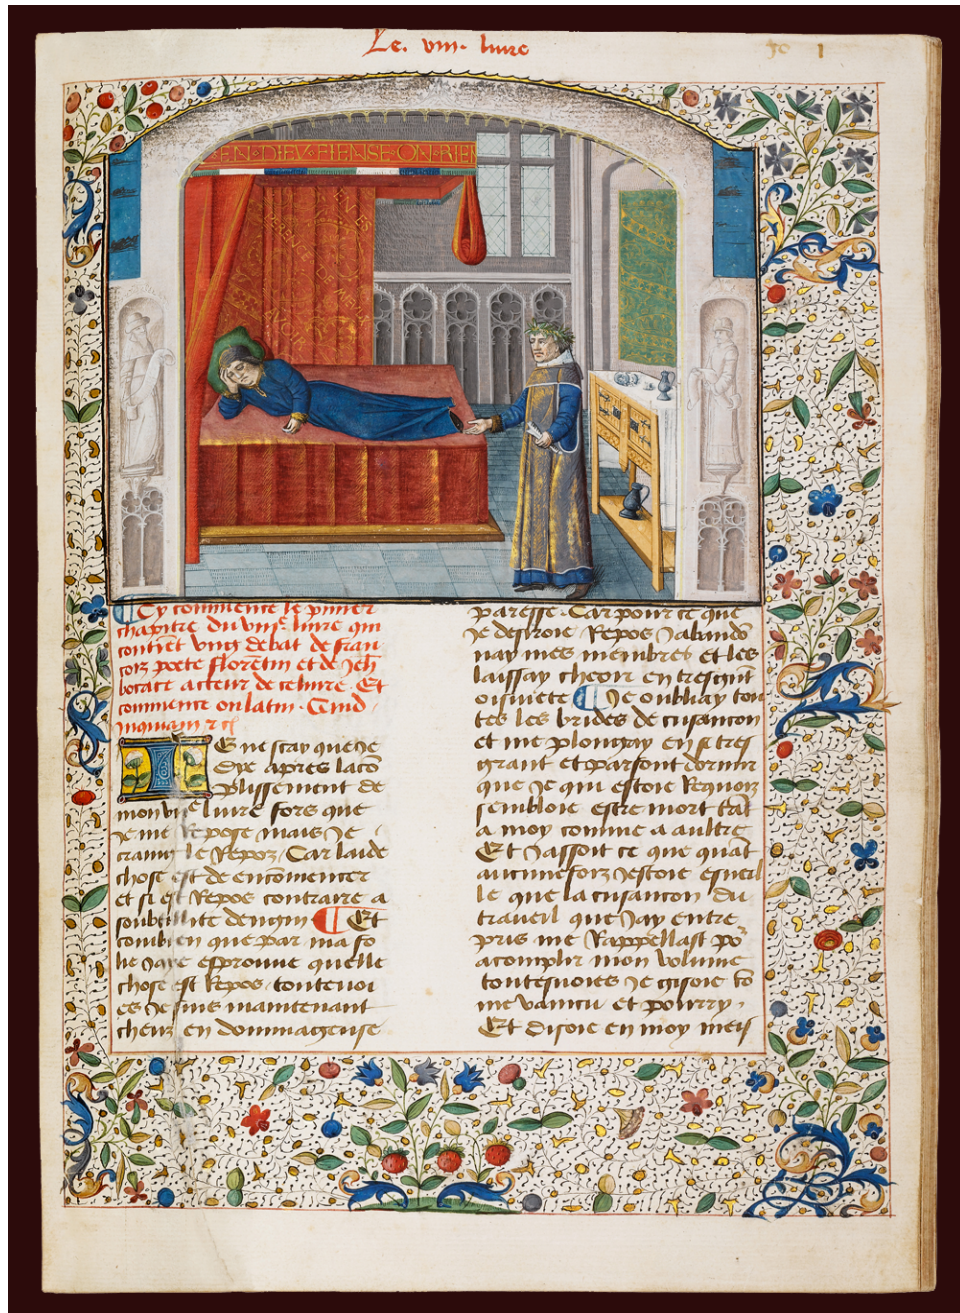 Le. viii. livre
50 1
EN DIEV FIENSE ON RIEN
Cy commence le p'mier
chapitre du viiie. livre qui
contiēt ung debat de fran
cois poete floretin et de jeh
bocace acteur de ce livre. Et
commence ou latin. Quid
inquam & c
E ne scay que je
dye apres lacō
plissement de
mon viie livre fors que
je me repose mais je
craing le Repoz. Car laide
chose est de encōmencer
et si est Repos contraire a
soubtillite dengin ¶ Et
combien que par ma fo
lie jaye esprouue quelle
chose est Repos. toutevoi
es je suis maintenant
cheuz en dommageuse
paresse. Car pour ce que
je desiroie Repos jabandō
nay mes membres et les
laissay cheoir en tresgūt
oisivete ¶ Je oubliay tou
tes les brides de cusancon
et me plongay en si tres
grant et parfont dormir
que je qui estoie Requoiz
sembloie estre mort tāt
a moy comme a aultre
Et jassoit ce que quāt
aucuneforz jestoie esueil
le que la cusancon du
traueil que jay entre
pris me Rappellast po'
acomplir mon volume
toutesuoies je gisoie cō
me vaincu et pourry,
Et disoie en moy meis